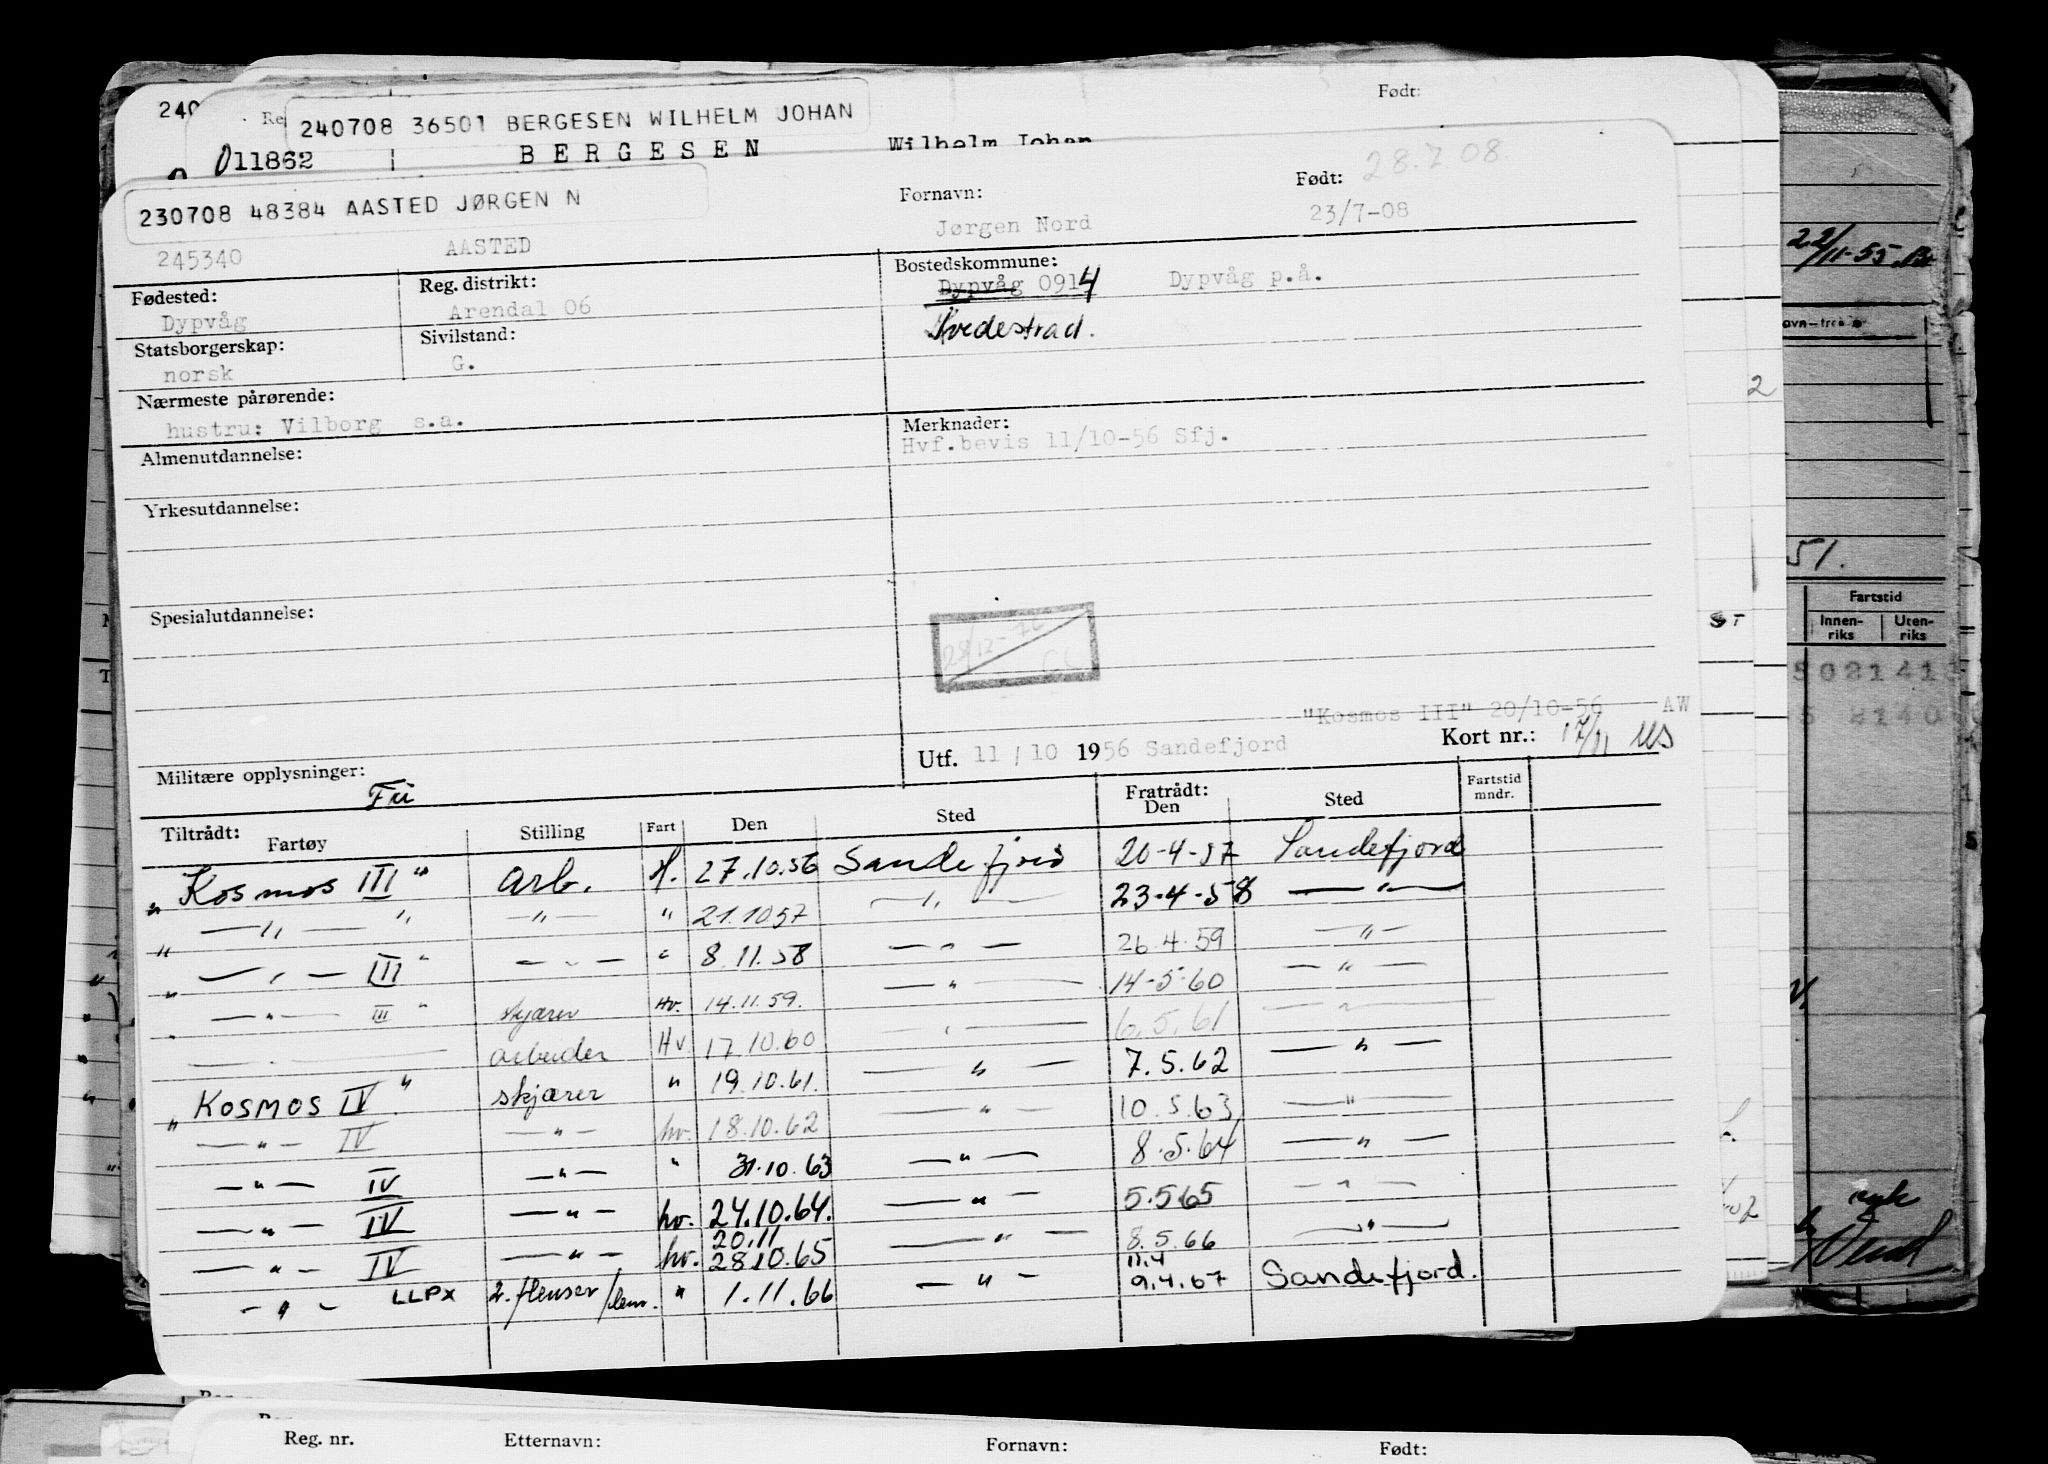 Født:
240708 36501 BERGESEN WILHELM JOHAN
011862 BERGESEN Wilhelm Johan
28.7 08.
230708 48384 AASTED JØRGEN N
Fornavn: Født:
245340 AASTED Jørgen Nord 23/7-08
Fødested: Reg. distrikt: Bostedskommune:
Dypvåg Arendal 06 Dypvåg 0914 Dypvåg p.å.
Statsborgerskap: Sivilstand:
norsk G.
Nærmeste pårørende:
hustru: Vilborg s.a.
Merknader:
Hvf.bevis 11/10-56 Sfj.
Almenutdannelse:
Yrkesutdannelse:
Spesialutdannelse:
"Kosmos III" 20/10-56 AW
Utf. 11/10 1956 Sandefjord Kort nr.: 17/11
Militære opplysninger:
Fri
Tiltrådt: Fratrådt:
Fartøy Stilling Fart Den Sted Den Sted Fartstid mndr.
"Kosmos III" arb. H. 27.10.56 Sandefjord 20-4-57 Sandefjord
" — " — " — " — " 21.10.57 — " — 23-4-58 — " —
" — " — III " — " — " 8.11.58 — " — 26.4.59 — " —
" — " — III " skjærer Hv. 14.11.59. — " — 14-5-60 — " —
" — " — arbeider Hv 17.10.60 — " — 6.5.61 — " —
"KOSMOS IV" skjærer " 19.10.61. — " — 7.5.62 — " —
— " — IV — " — hv. 18.10.62 — " — 10.5.63 — " —
— " — IV — " — " 31.10.63 — " — 8.5.64 — " —
— " — IV — " — hv. 24.10.64. — " — 5.5.65 — " —
20.11
— " — IV — " — hv. 28.10.65 — " — 8.5.66 — " —
11.4
— " — LLPX 2. flenser/lem. " 1.11.66 — " — 9.4.67 Sandefjord.
22/11-55
51.
Fartstid
Innen-riks Uten-riks
Reg. nr. Etternavn: Fornavn: Født: